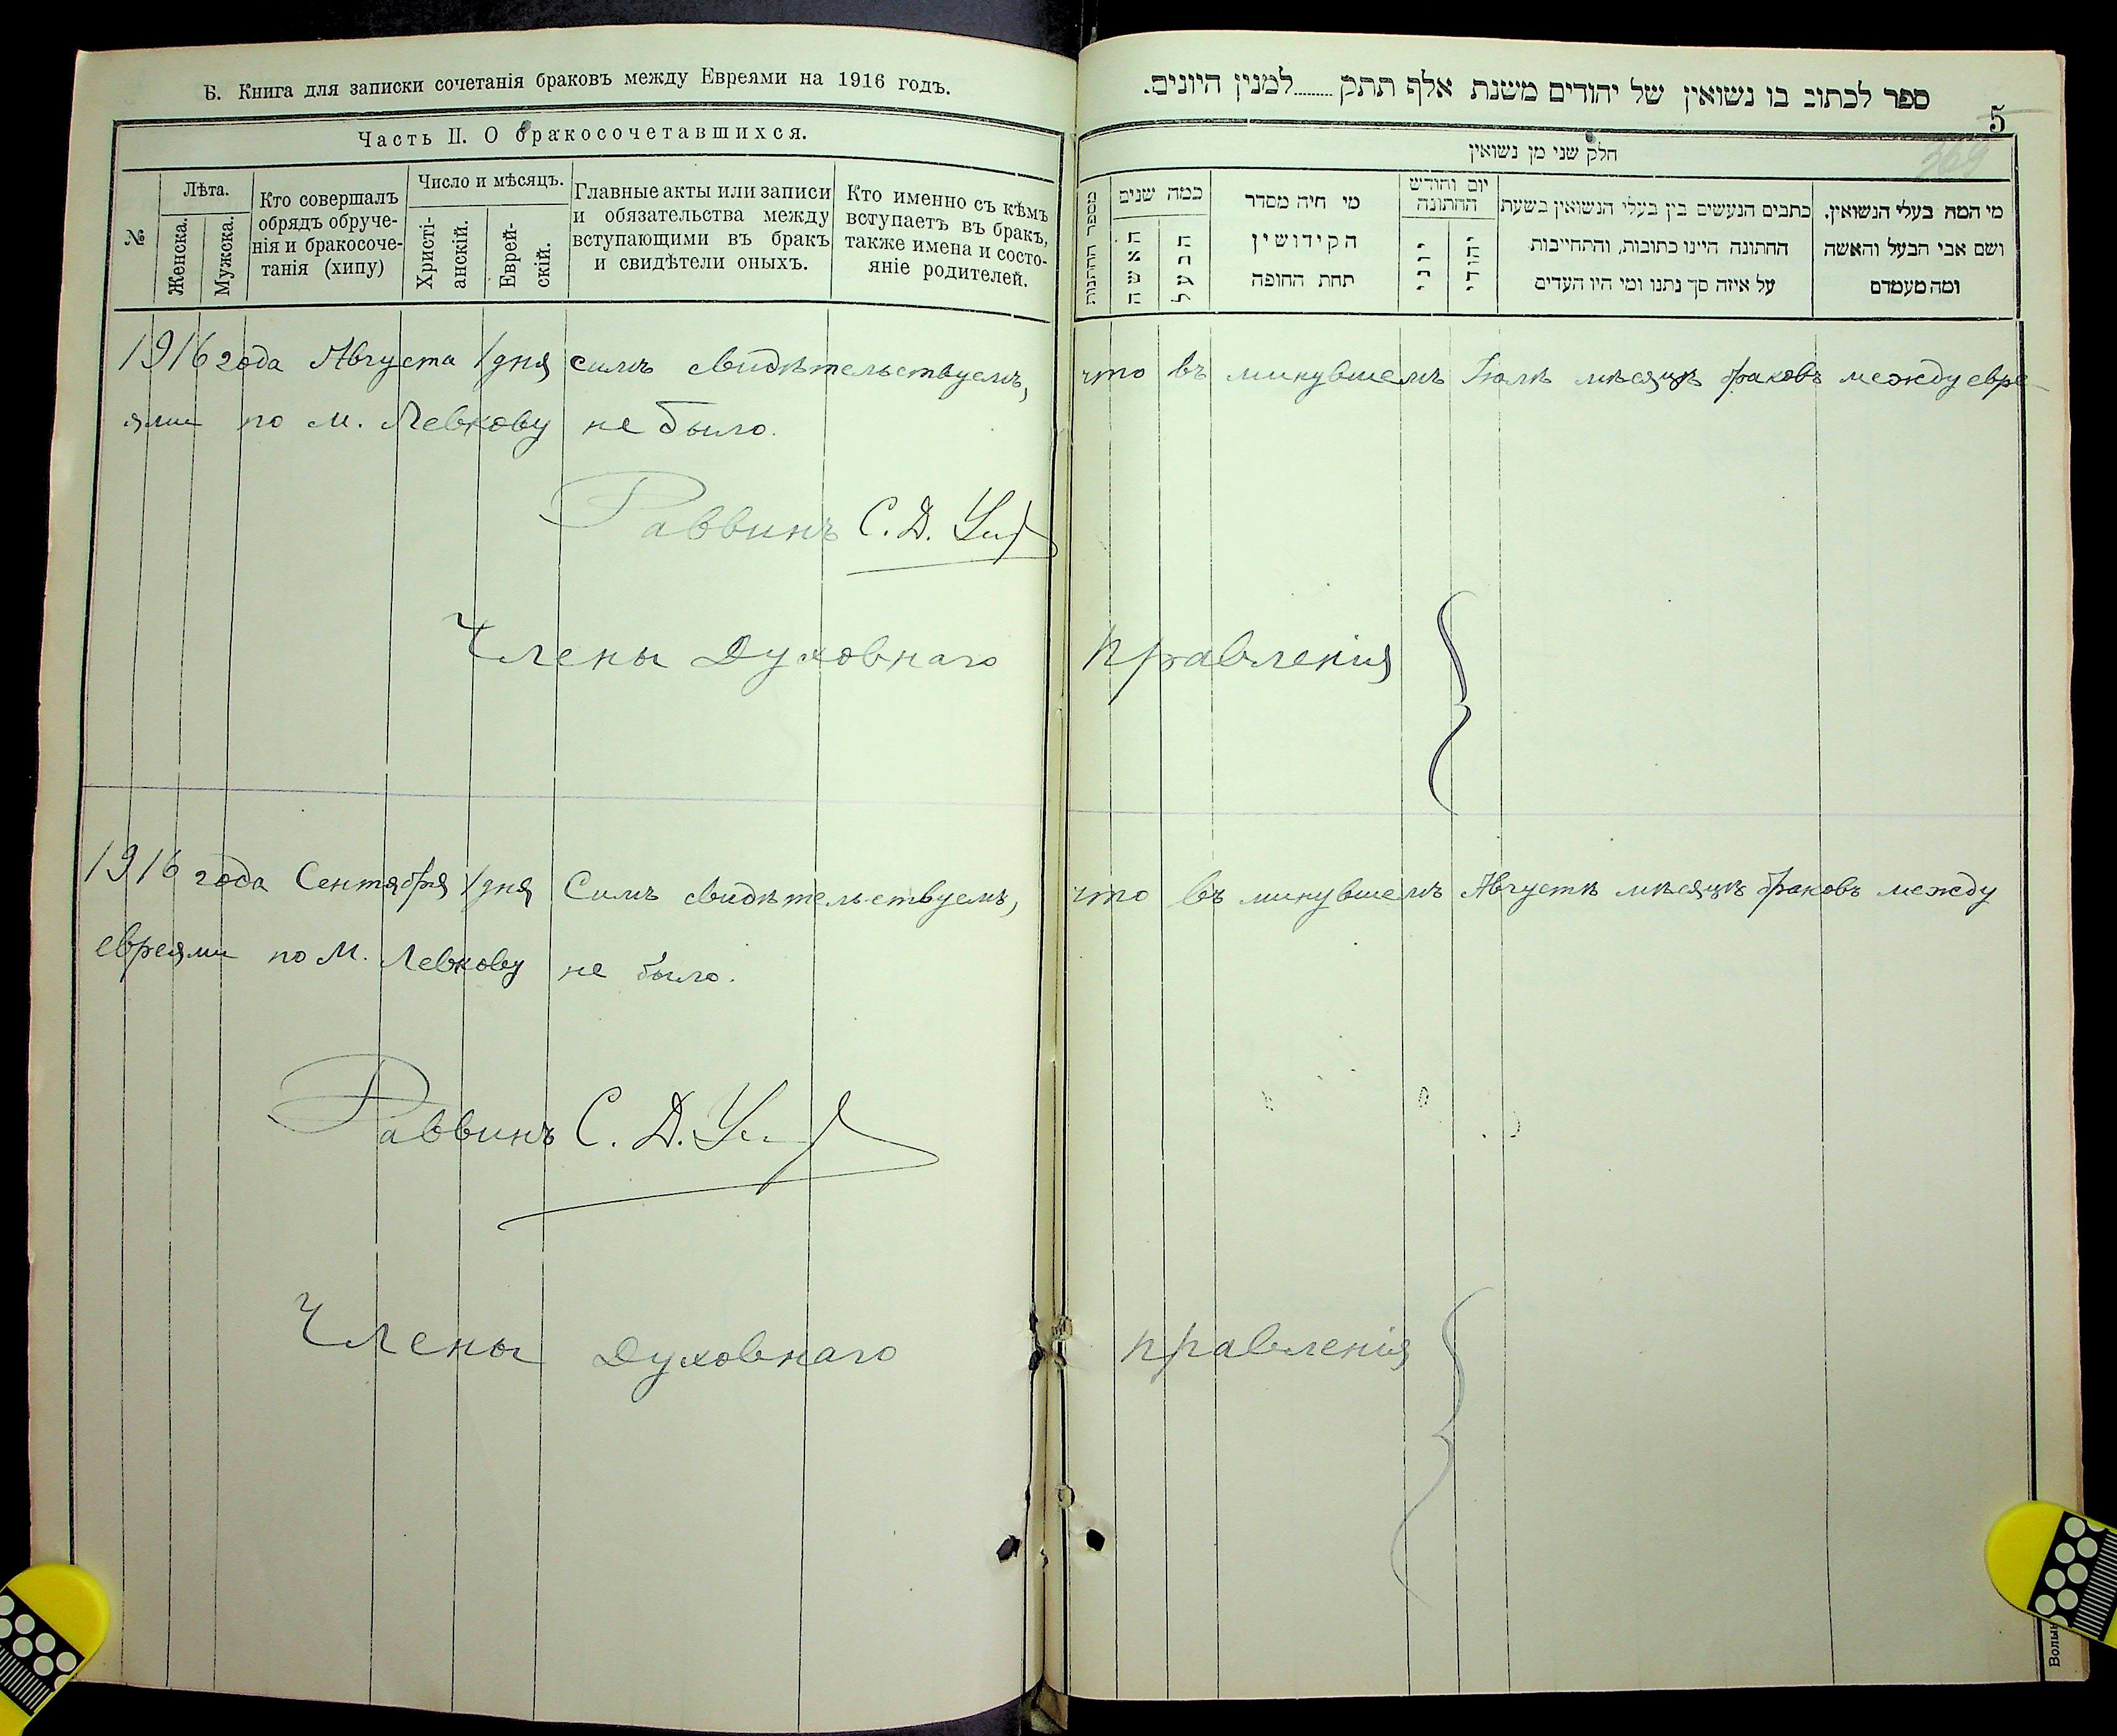 Б. Книга для записки сочетанія браковъ между Евреями на 1916 годъ.
Часть II. О бракосочетавшихся.
№
Лѣта.
Женска.
Мужска.
Кто совершалъ
обрядъ обруче-
нія и бракосоче-
танія (хипу)
Число и мѣсяцъ.
Христі-
анскій.
Еврей-
скій.
Главные акты или записи
и обязательства между
вступающими въ бракъ
и свидѣтели оныхъ.
Кто именно съ кѣмъ
вступаетъ въ бракъ,
также имена и состо-
яніе родителей.
ספר לכתוב בו נשואין של יהודים משנת אלף תתק........למנין היונים.
5
369
חלק שני מן נשואין
מספר החתונות
כמה שנים
האשה
הבעל
מי היה מסדר
הקידושין
תחת החופה
יום וחודש
החתונה
יוני
יהודי
כתבים הנעשים בין בעלי הנשואין בשעת
החתונה היינו כתובות, והתחייבות
על איזה סך נתנו ומי היו העדים
מי המה בעלי הנשואין.
ושם אבי הבעל והאשה
ומה מעמדם
1916 года Августа 1 дня симъ свидѣтельствуемъ, что въ минувшемъ Іюлѣ мѣсяцѣ браковъ между евре-
ями по м. Левкову не было.
Раввинъ С. Д.
Члены Духовнаго правленія
1916 года Сентября 1 дня Симъ свидѣтельствуемъ, что въ минувшемъ Августѣ мѣсяцѣ браковъ между
евреями по М. Левкову не было.
Раввинъ С. Д.
Члены Духовнаго правленія